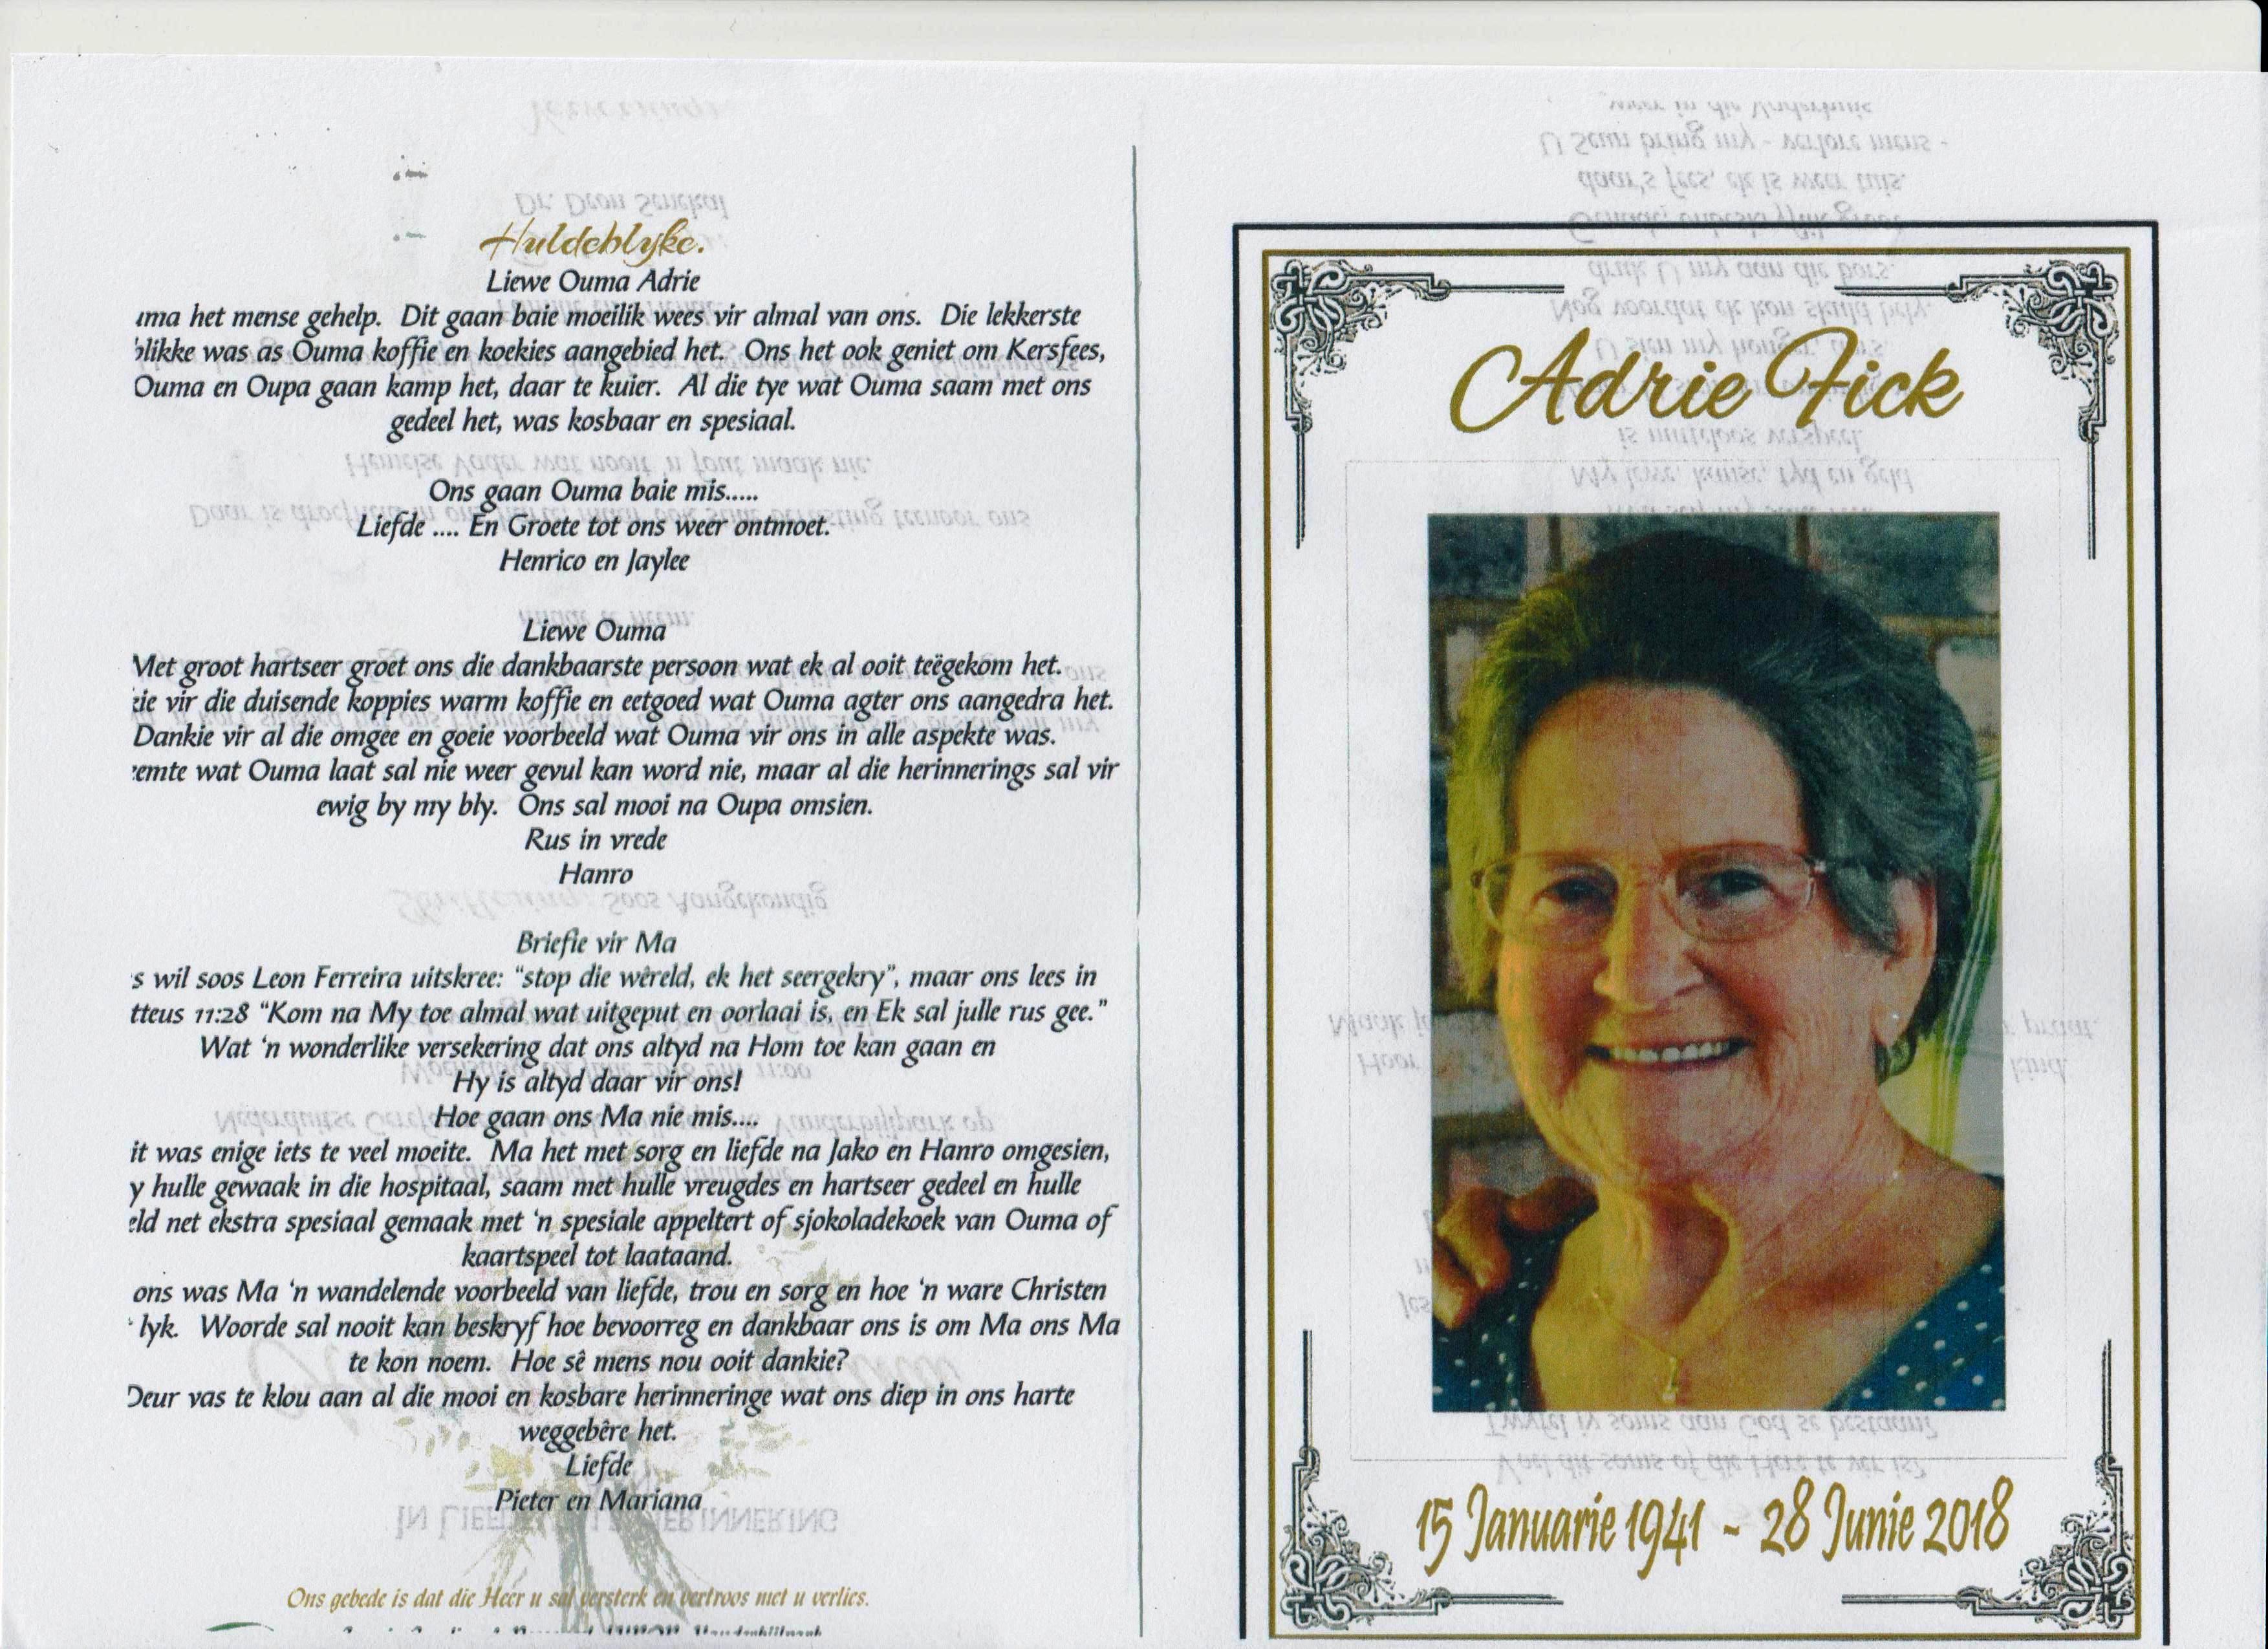 Huldeblyke.
Liewe Ouma Adrie
het mense gehelp. Dit gaan baie moeilik wees vir almal van ons. Die lekkerste
was as Ouma koffie en koekies aangebied het. Ons het ook geniet om Kersfees,
Ouma en Oupa gaan kamp het, daar te kuier. Al die tye wat Ouma saam met ons
gedeel het, was kosbaar en spesiaal.
Ons gaan Ouma baie mis.....
Liefde .... En Groete tot ons weer ontmoet.
Henrico en Jaylee
Liewe Ouma
Met groot hartseer groet ons die dankbaarste persoon wat ek al ooit teëgekom het.
vir die duisende koppies warm koffie en eetgoed wat Ouma agter ons aangedra het.
Dankie vir al die omgee en goeie voorbeeld wat Ouma vir ons in alle aspekte was.
wat Ouma laat sal nie weer gevul kan word nie, maar al die herinnerings sal vir
ewig by my bly. Ons sal mooi na Oupa omsien.
Rus in vrede
Hanro
Briefie vir Ma
wil soos Leon Ferreira uitskree: "stop die wêreld, ek het seergekry", maar ons lees in
tteus 11:28 "Kom na My toe almal wat uitgeput en oorlaai is, en Ek sal julle rus gee."
Wat 'n wonderlike versekering dat ons altyd na Hom toe kan gaan en
Hy is altyd daar vir ons!
Hoe gaan ons Ma nie mis....
it was enige iets te veel moeite. Ma het met sorg en liefde na Jako en Hanro omgesien,
y hulle gewaak in die hospitaal, saam met hulle vreugdes en hartseer gedeel en hulle
eld net ekstra spesiaal gemaak met 'n spesiale appeltert of sjokoladekoek van Ouma of
kaartspeel tot laataand.
ons was Ma 'n wandelende voorbeeld van liefde, trou en sorg en hoe 'n ware Christen
lyk. Woorde sal nooit kan beskryf hoe bevoorreg en dankbaar ons is om Ma ons Ma
te kon noem. Hoe sê mens nou ooit dankie?
Deur vas te klou aan al die mooi en kosbare herinneringe wat ons diep in ons harte
weggebêre het.
Liefde
Pieter en Mariana
Ons gebede is dat die Heer u sal versterk en vertroos met u verlies.
Adrie Fick
15 Januarie 1941 - 28 Junie 2018